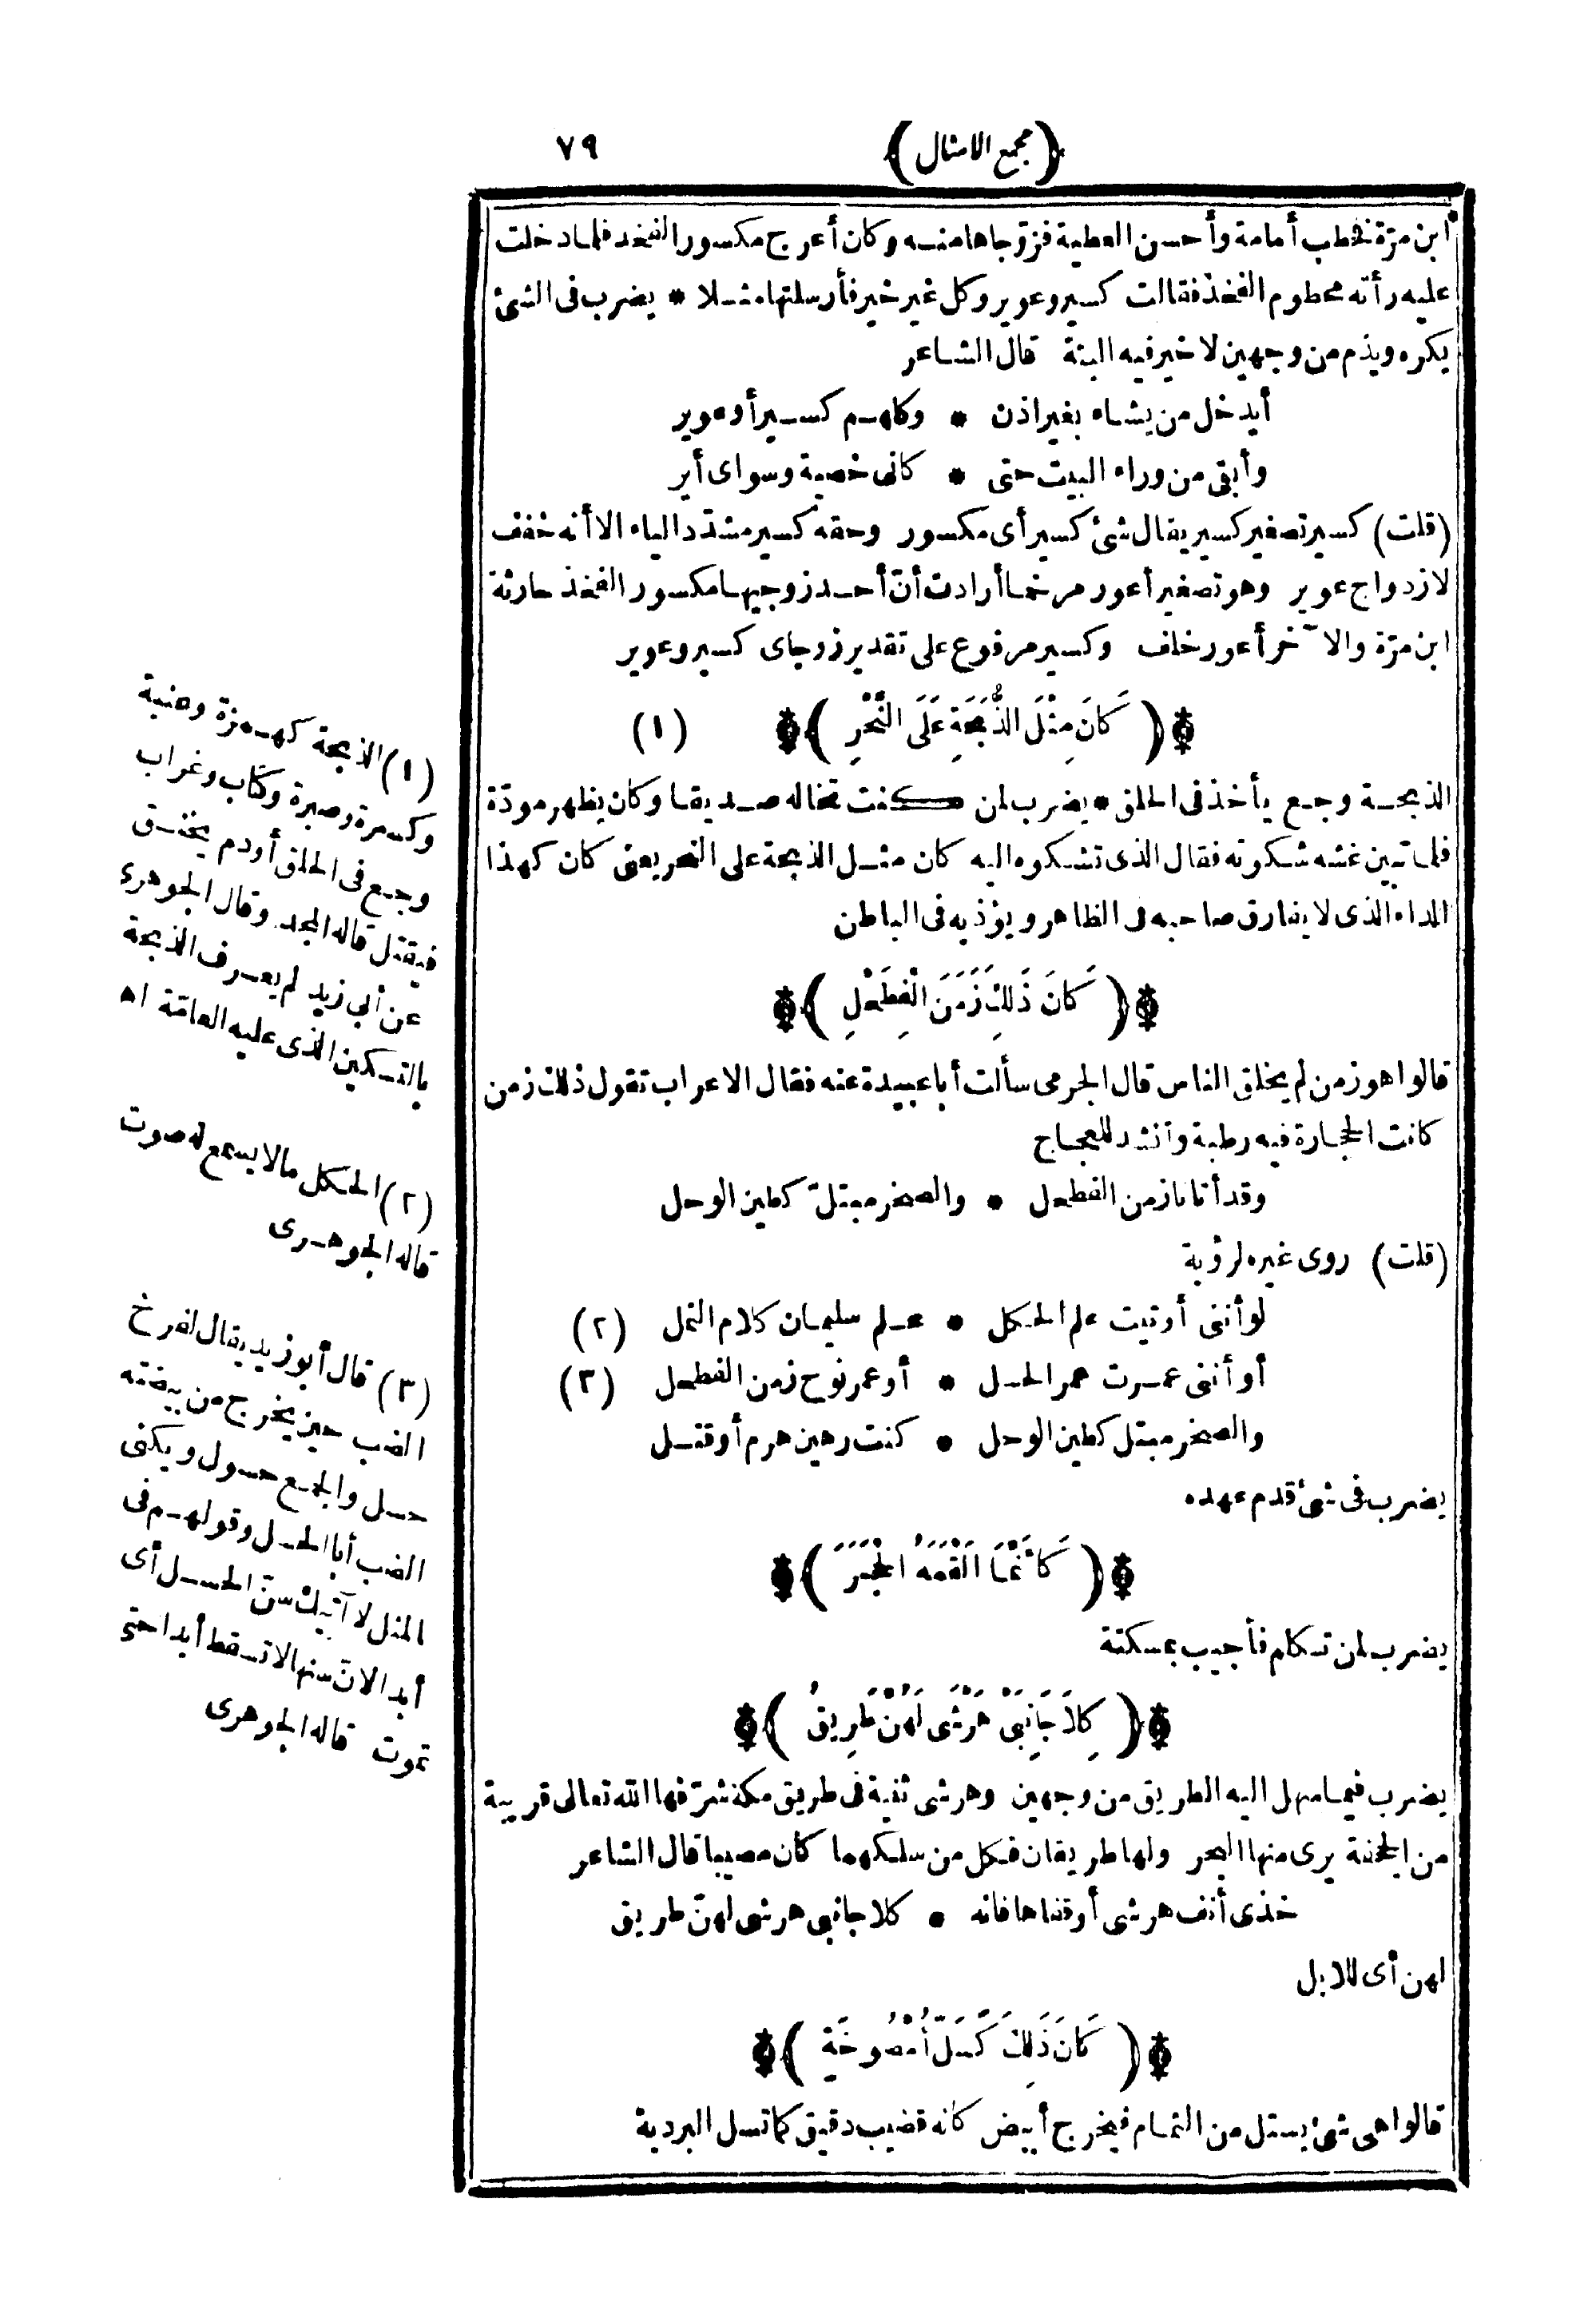 ﴿مجمع الامثال﴾
٧٩
ابن مرّة فخطب أمامة وأحسن العطية فزوّجاها منه وكان أعرج مكسور الفخذ فلما دخلت
عليه رأته محطوم الفخذ فقالت كسير وعوير وكل غير خير فأرسلتها مثلا * يضرب فى الشئ
يكره ويذم من وجهين لا خير فيه البتة قال الشاعر
أيدخل من يشاء بغير اذن * وكلهم كسير أو عوير
وأبقى من وراء البيت حتى * كانى خصية وسواى أير
(قلت) كسير تصغير كسير يقال شئ كسير أى مكسور وحقه كسير مشدّد الياء الا أنه خفف
لازدواج عوير وهو تصغير أعور مرخما أرادت أنّ أحد زوجيها مكسور الفخذ حارثة
ابن مرّة والآخر أعور خلف وكسير مرفوع على تقدير زوجاى كسير وعوير
﴿كَانَ مِثْلَ الذُّبَحَةِ عَلَى النَّحْرِ﴾ (١)
الذبحة وجع يأخذ فى الحلق * يضرب لمن كنت تخاله صديقا وكان يظهر مودّة
فلما تبين غشه شكوته فقال الذى تشكوه اليه كان مثل الذبحة على النحر يعنى كان كهذا
الداء الذى لا يفارق صاحبه فى الظاهر ويؤذيه فى الباطن
﴿كَانَ ذَلِكَ زَمَنَ الْفِطَحْلِ﴾
قالوا هو زمن لم يخلق الناس قال الجرمى سألت أبا عبيدة عنه فقال الاعراب تقول ذلك زمن
كانت الحجارة فيه رطبة وأنشد للعجاج
وقد أتانا زمن الفطحل * والصخر مبتلّ كطين الوحل
(قلت) روى غيره لرؤبة
لو أننى أوتيت علم الحكل * علم سليمان كلام النمل (٢)
أو أننى عمرت عمر الحسل * أو عمر نوح زمن الفطحل (٣)
والصخر مبتل كطين الوحل * كنت رهين هرم أو قتل
يضرب فى شئ قدم عهده
﴿كَأَنَّمَا أَلْقَمَهُ الْحَجَرَ﴾
يضرب لمن تكلم فأجيب بمسكتة
﴿كِلاَ جَانِبَىْ هَرْشَى لَهُنَّ طَرِيقُ﴾
يضرب فيما سهل اليه الطريق من وجهين وهرشى ثنية فى طريق مكة شرّفها الله تعالى قريبة
من الجحفة يرى منها البحر ولها طريقان فكل من سلكهما كان مصيبا قال الشاعر
خذى أنف هرشى أو قفاها فانه * كلا جانبى هرشى لهنّ طريق
لهن أى للابل
﴿كَانَ ذَلِكَ كَسَلِّ أُمْصُوخَةٍ﴾
قالوا هى شئ يستل من الثمام فيخرج أبيض كانه قضيب دقيق كما تسل البردية
(١) الذبحة كهمزة وعنبة
وكسرة وصبرة وكتاب وغراب
وجع فى الحلق أو دم يخنق
فيقتل قاله المجد وقال الجوهرى
عن أبى زيد لم يعرف الذبحة
بالتسكين الذى عليه العامّة اه
(٢) الحكل مالا يسمع له صوت
قاله الجوهرى
(٣) قال أبو زيد يقال لفرخ
الضب حين يخرج من بيضته
حسل والجمع حسول ويكنى
الضب أبا الحسل وقولهم فى
المثل لا آتيك سنّ الحسل أى
أبدا لانّ سنها لا تسقط أبدا حتى
تموت قاله الجوهرى